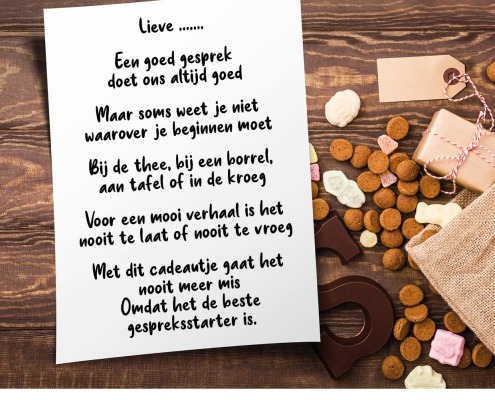 Lieve .......
Een goed gesprek
doet ons altijd goed
Maar soms weet je niet
waarover je beginnen moet
Bij de thee, bij een borrel,
aan tafel of in de kroeg
Voor een mooi verhaal is het
nooit te laat of nooit te vroeg
Met dit cadeautje gaat het
nooit meer mis
Omdat het de beste
gespreksstarter is.